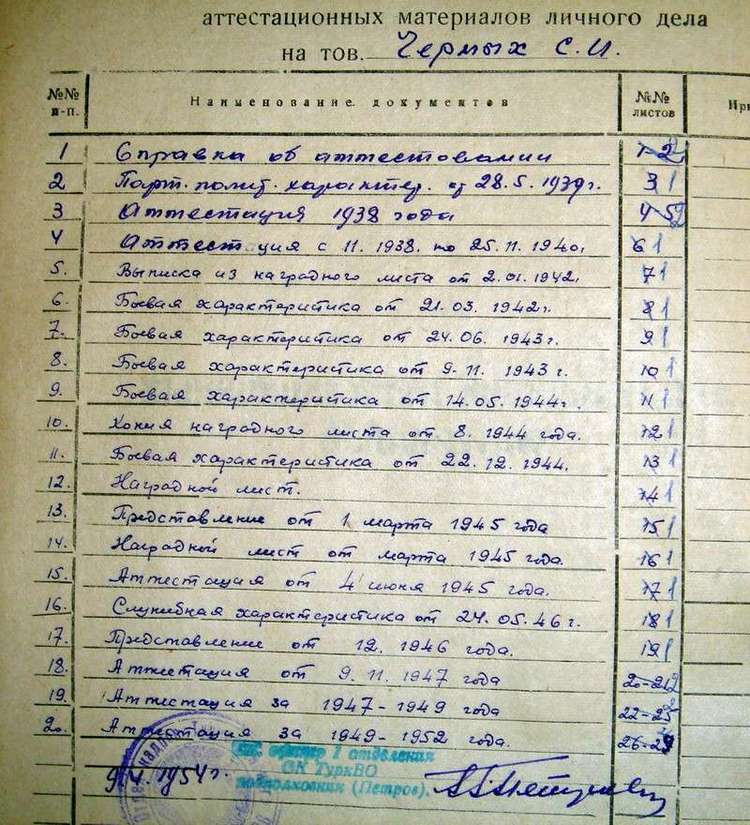 аттестационных материалов личного дела
на тов. Чермых С. И.
№№ п-п. Наименование документов №№ листов При
1 Справка об аттестовании 1-2
2 Парт. полит. характер. от 28.5.1939г. 3 1
3 Аттестация 1938 года 4-5
4 Аттестация с 11.1938. по 25.11.1940г. 6 1
5. Выписка из наградного листа от 2.01.1942. 7 1
6. Боевая характеристика от 21.03.1942г. 8 1
7. Боевая характеристика от 24.06.1943г. 9 1
8. Боевая характеристика от 9.11.1943г. 10 1
9. Боевая характеристика от 14.05.1944г. 11 1
10. Копия наградного листа от 8.1944 года. 12 1
11. Боевая характеристика от 22.12.1944. 13 1
12. Наградной лист. 14 1
13. Представление от 1 марта 1945 года 15 1
14. Наградной лист от марта 1945 года. 16 1
15. Аттестация от 4 июня 1945 года. 17 1
16. Служебная характеристика от 24.05.46г. 18 1
17. Представление от 12.1946 года. 19 1
18. Аттестация от 9.11.1947 года 20-21 2
19. Аттестация за 1947-1949 года 22-25
20. Аттестация за 1949-1952 года. 26-29
офицер 1 отделения
ОК ТуркВО
подполковник (Петров).
9.4.1954г.